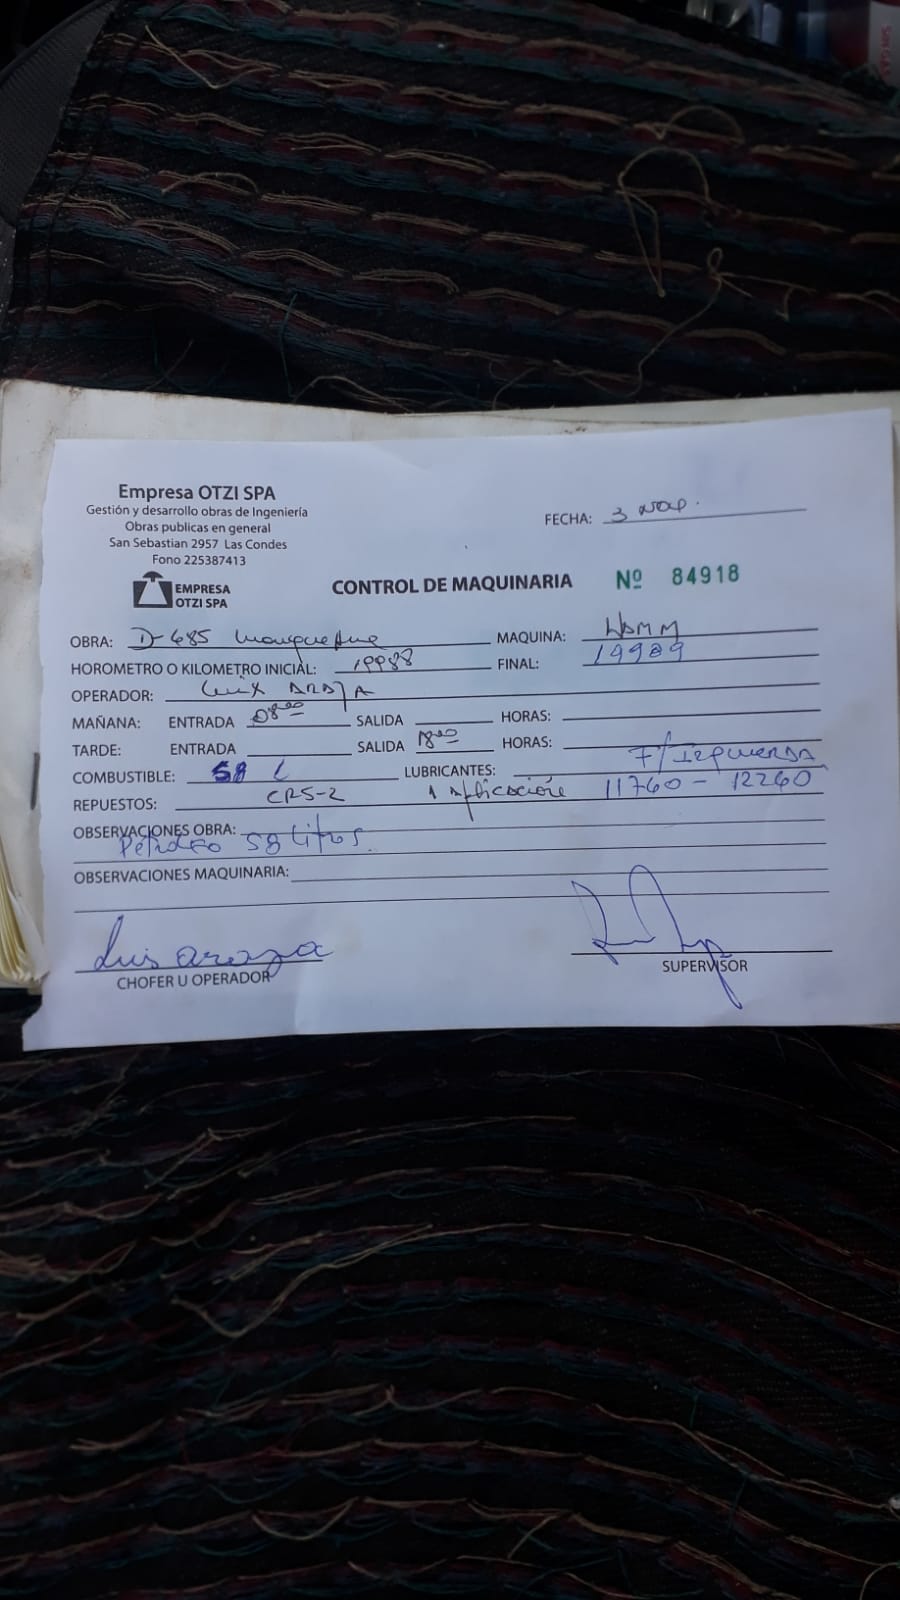 Empresa OTZI SPA
Gestión y desarrollo obras de Ingeniería
Obras publicas en general
San Sebastian 2957 Las Condes
Fono 225387413
FECHA: 3 NOV.
EMPRESA
OTZI SPA
CONTROL DE MAQUINARIA Nº 84918
OBRA: D-685 MAQUINA:
HOROMETRO O KILOMETRO INICIAL: 19988 FINAL: 19989
OPERADOR: Luis ARAYA
MAÑANA: ENTRADA 08:00 SALIDA HORAS:
TARDE: ENTRADA SALIDA 18:00 HORAS:
COMBUSTIBLE: 58 L LUBRICANTES: F/IZQUIERDA
REPUESTOS: CRS-2 1 Aplicación 11760 - 12260
OBSERVACIONES OBRA:
Petroleo 58 litros.
OBSERVACIONES MAQUINARIA:
Luis araya
CHOFER U OPERADOR
SUPERVISOR